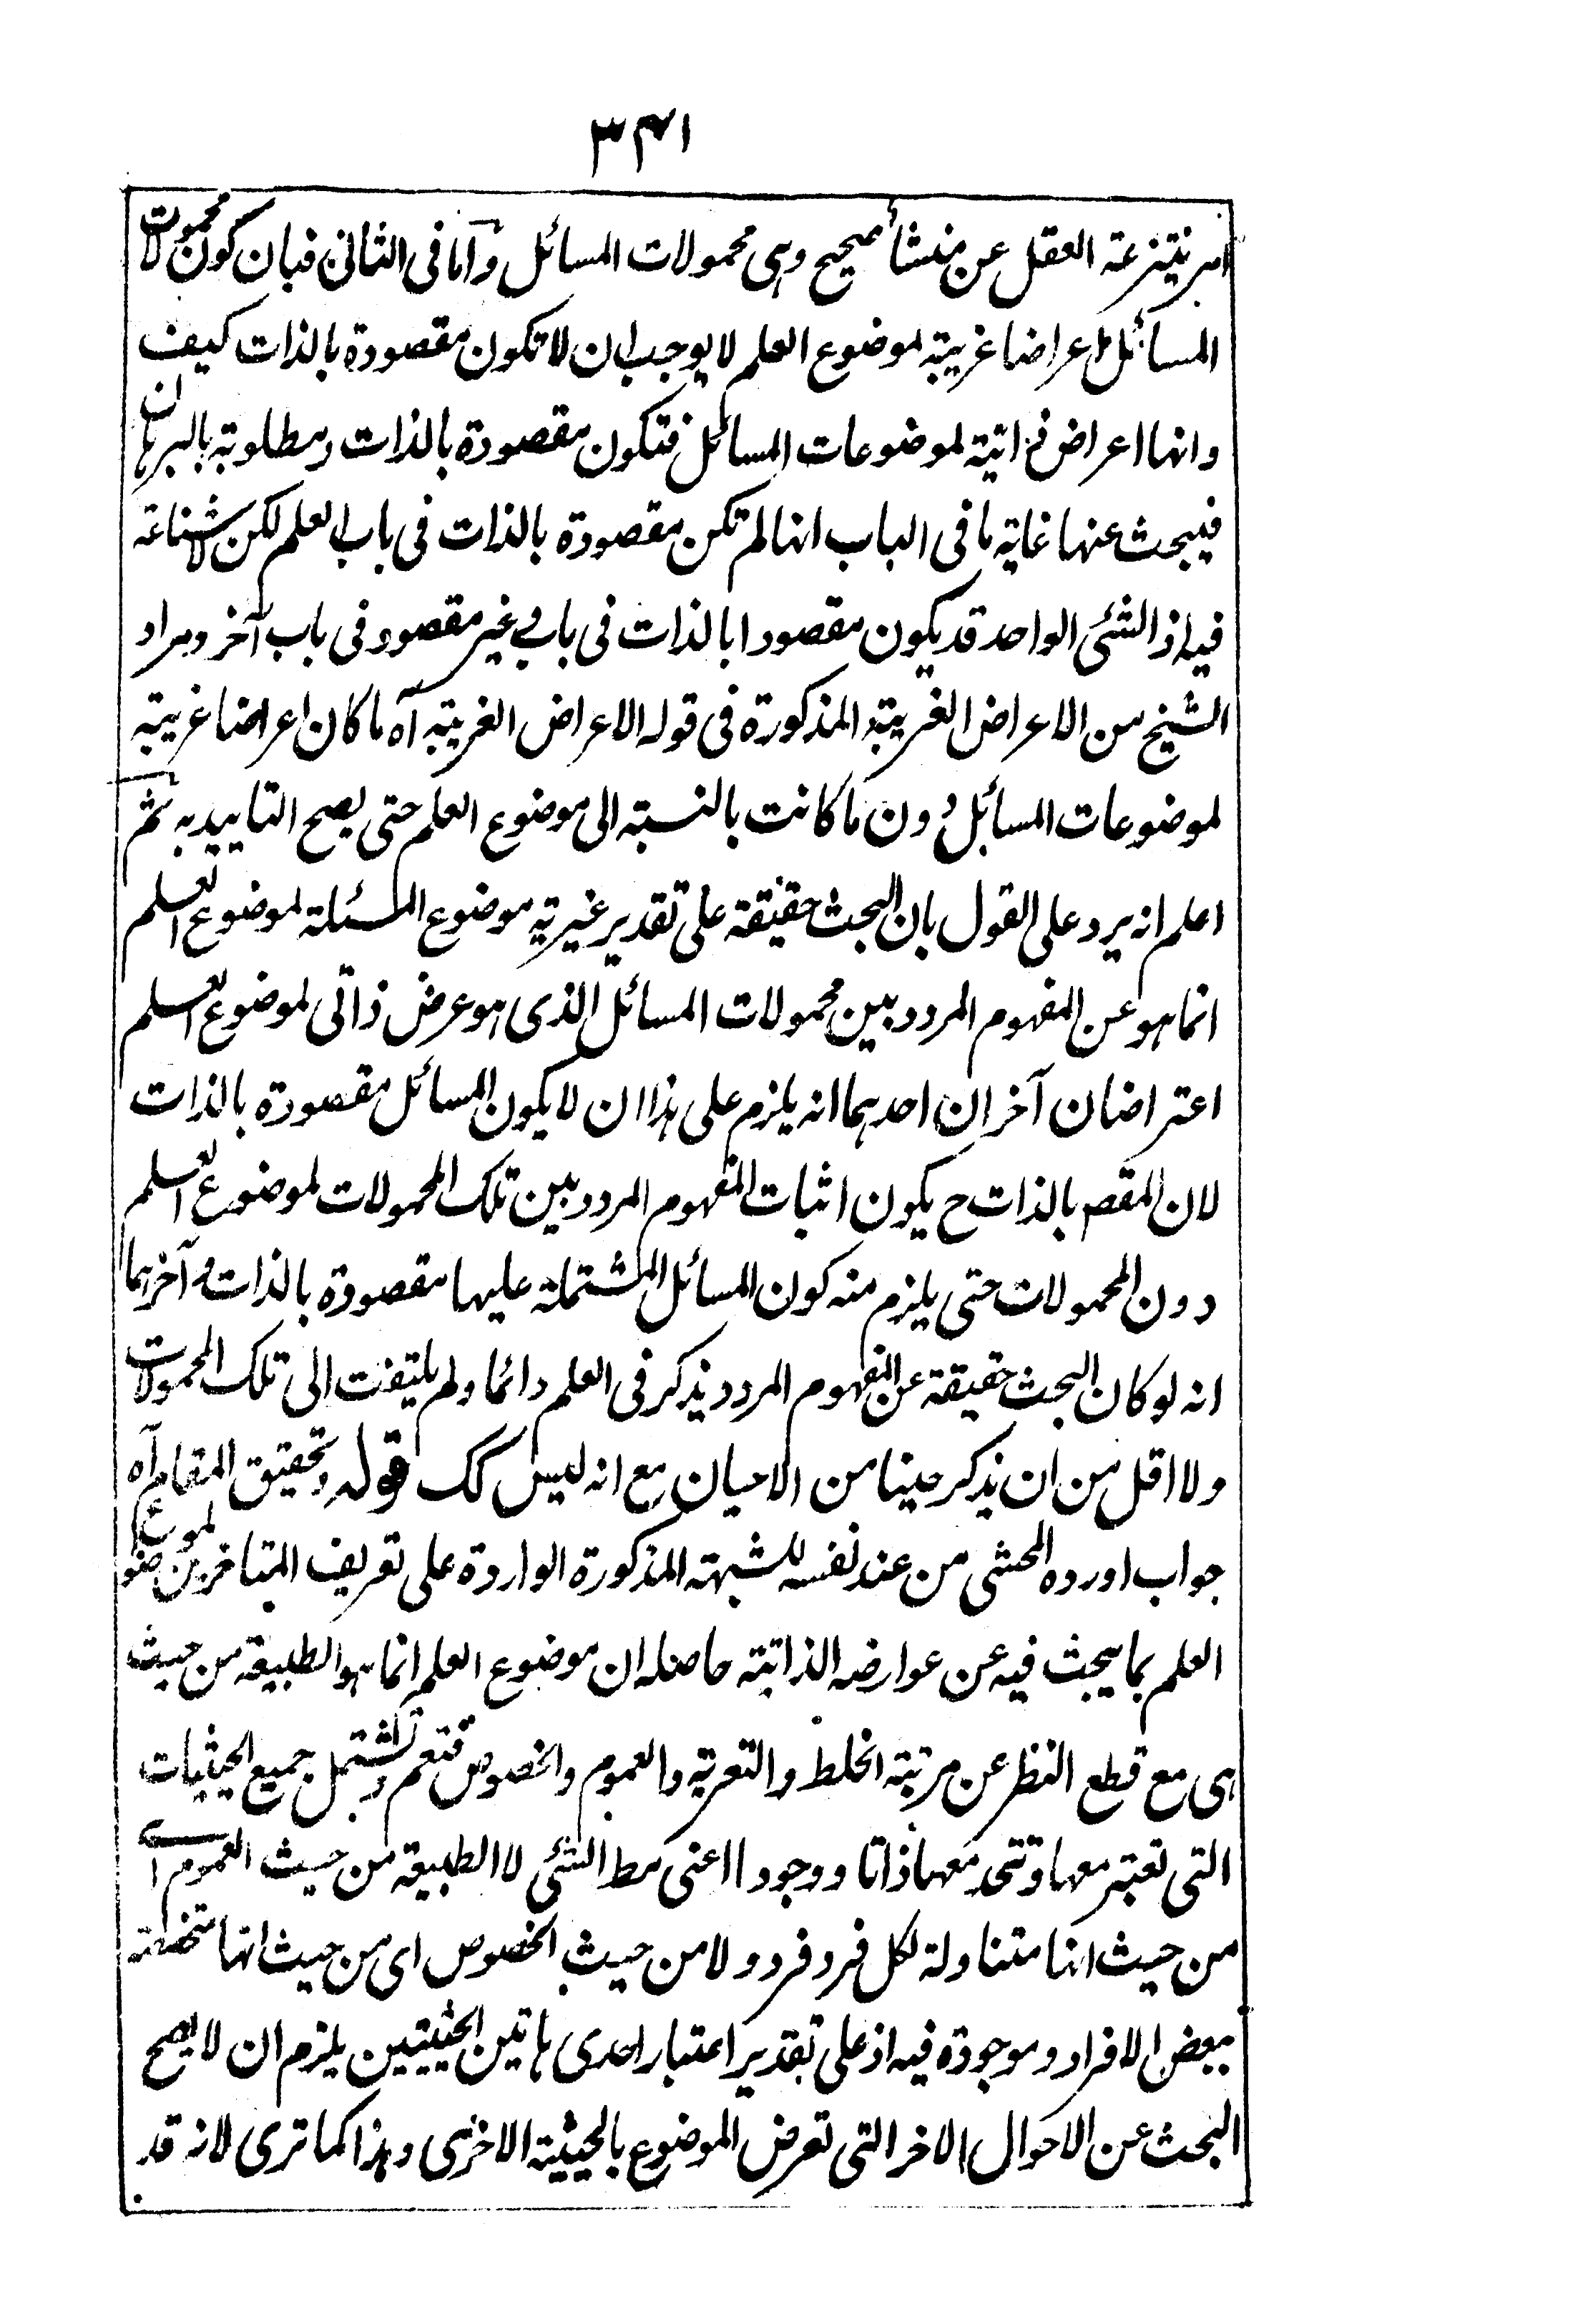 ٣٤١
امر ينتزعه العقل عن منشأ صحيح وهى محمولات المسائل وأما فى الثانى فبان كون محمولات
المسائل اعراضا غريبة لموضوع العلم لا يوجب ان لا تكون مقصودة بالذات كيف
وانها اعراض ذاتية لموضوعات المسائل فتكون مقصودة بالذات ومطلوبة بالبرهان
فيبحث عنها غاية ما فى الباب انها لم تكن مقصودة بالذات فى باب العلم لكن لا شناعة
فيه اذ الشئ الواحد قد يكون مقصودا بالذات فى باب غير مقصود فى باب آخر ومراد
الشيخ من الاعراض الغريبة المذكورة فى قوله الاعراض الغريبة آه ما كان اعراضا غريبة
لموضوعات المسائل دون ما كانت بالنسبة الى موضوع العلم حتى يصح التاييد به ثم
اعلم انه يرد على القول بان البحث حقيقة على تقدير غيرية موضوع المسئلة لموضوع العلم
انما هو عن المفهوم المردد بين محمولات المسائل الذى هو عرض ذاتى لموضوع العلم
اعتراضان آخران احدهما انه يلزم على هذا ان لا يكون المسائل مقصودة بالذات
لان المقصـ بالذات ح يكون اثبات المفهوم المردد بين تلك المحمولات لموضوع العلم
دون المحمولات حتى يلزم منه كون المسائل المشتملة عليها مقصودة بالذات وآخرهما
انه لو كان البحث حقيقة عن المفهوم المردد يذكر فى العلم دائما ولم يلتفت الى تلك المحمولات
ولا اقل من ان يذكر حينا من الاحيان مع انه ليس كك قوله وتحقيق المقام آه
جواب اورده المحشى من عند نفسه للشبهة المذكورة الواردة على تعريف المتاخرين لموضوع
العلم بما يبحث فيه عن عوارضه الذاتية حاصله ان موضوع العلم انما هو الطبيعة من حيث
هى مع قطع النظر عن مرتبة الخلط والتعرية والعموم والخصوص فتعم وتشتمل جميع الحيثيات
التى تعتبر معها وتتحد معها ذاتا ووجودا اعنى مط الشئ لا الطبيعة من حيث العموم اى
من حيث انها متناولة لكل فرد فرد ولا من حيث الخصوص اى من حيث انها متخصصة
ببعض الافراد وموجودة فيه اذ على تقدير اعتبار احدى هاتين الحيثيتين يلزم ان لا يصح
البحث عن الاحوال الاخر التى تعرض الموضوع بالحيثية الاخرى وهذا كما ترى لانه قد